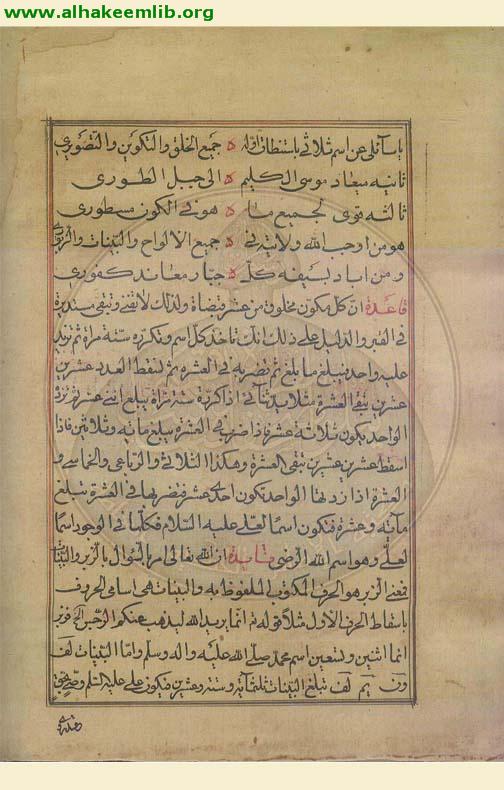 www.alhakeemlib.org
يا سائلي عن اسم ثلاثي باستنطاق اوله ه جميع الخلق والتكوين والتصويري
ثانيه ميعاد موسى الكليم الى جبل الطوري
ثالثه قوى لجميع ما ه هو في الكون مسطوري
هو من اوجب الله ولايته في ه جميع الالواح والبينات والزبوري
ومن اباد بسيفه كل ه جبار معاند كفوري
قاعدة ان كل مكون مخلوق من عشر قبضاة ولذلك لا تفنى وتبقى مستديرة
في القبر والدليل على ذلك انك تاخذ كل اسم وتكرره ستة مرة ثم تزيد
عليه واحد فيبلغ ما بلغ ثم تضربه في العشرة ثم تسقط العدد عشرين
عشرين تبقى العشرة مثلا من ثنائي اذا كررته ست مراة يبلغ اثنى عشر ثم تزد
الواحد يكون ثلاثة عشر فاذا ضرب في العشرة يبلغ مائة وثلاثين فاذا
اسقط عشرين عشرين تبقى العشرة وهكذا الثلاثي والرباعي والخماسي و
العشرة اذا زدنا الواحد تكون احدى عشر فتضربها في العشرة تبلغ
مآية وعشرة فتكون اسما لعلي عليه السلام فكلما في الوجود اسما
لعلي وهو اسم الله الرضي فايدة ان الله تعالى امر بالسؤال بالزبر والبينات
فمعنى الزبر هو الحرف المكتوب الملفوظ به والبينات هي اسامي الحروف
باسقاط الحرف الاول مثلا قوله تع انما يريد الله ليذهب عنكم الرجس الخ فزبر
انما اثنين وتسعين اسم محمد صلى الله عليه واله وسلم واما البينات لف
ون يم لف تبلغ البينات ثلثمائة وستة وعشرين فيكون علي عليه السلم وصي بحق